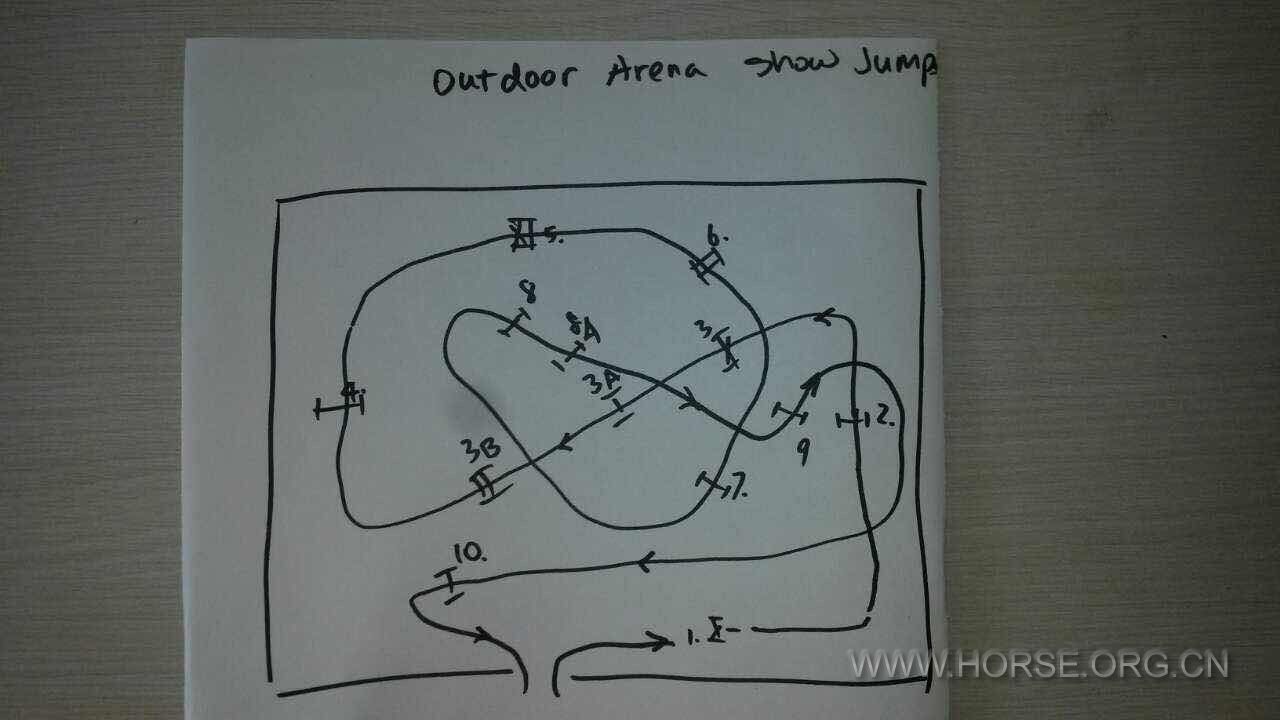 Outdoor Arena Show Jump
5.
6.
8
8A
3
3A
4.
2.
9
3B
7.
10.
1.
WWW.HORSE.ORG.CN